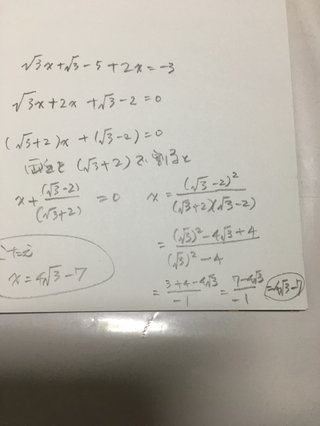 √3x+√3-5+2x=-3
√3x+2x+√3-2=0
(√3+2)x+(√3-2)=0
両辺を(√3+2)で割ると
x+(√3-2)/(√3+2)=0 x=(√3-2)²/(√3+2)(√3-2)
=(√3)²-4√3+4/(√3)²-4
=3+4-4√3/-1=7-4√3/-1=4√3-7
こたえ
x=4√3-7